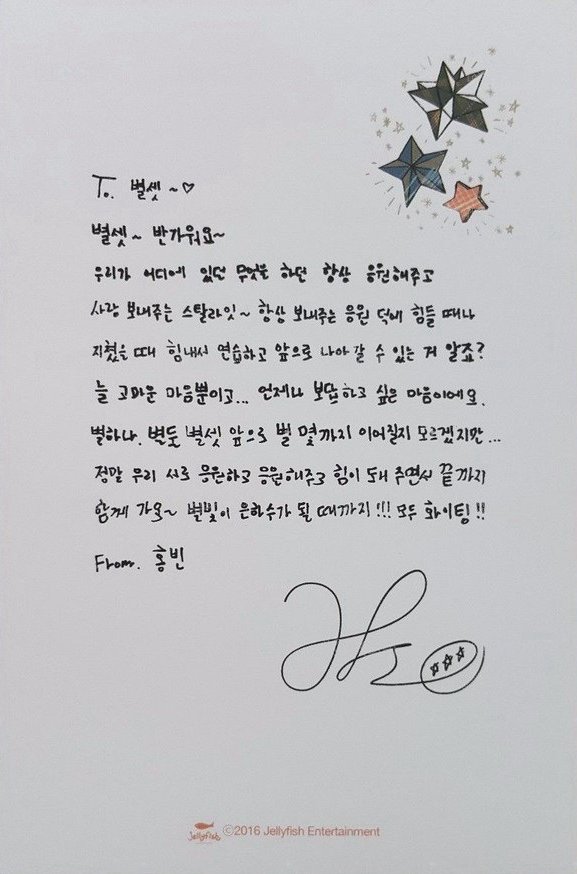 To. 별셋~♡
별셋~ 반가워요~
우리가 어디에 있던 무엇을 하던 항상 응원해주고
사랑 보내주는 스탈라잇~ 항상 보내주는 응원 덕에 힘들 때나
지쳤을 때 힘내서 연습하고 앞으로 나아갈 수 있는 거 알죠?
늘 고마운 마음뿐이고... 언제나 보답하고 싶은 마음이에요.
별하나. 별둘 별셋 앞으로 별 몇까지 이어질지 모르겠지만...
정말 우리 서로 응원하고 응원해주고 힘이 돼 주면서 끝까지
함께 가요~ 별빛이 은하수가 될 때까지!!! 모두 화이팅!!
From. 홍빈
jellyfish ©2016 Jellyfish Entertainment